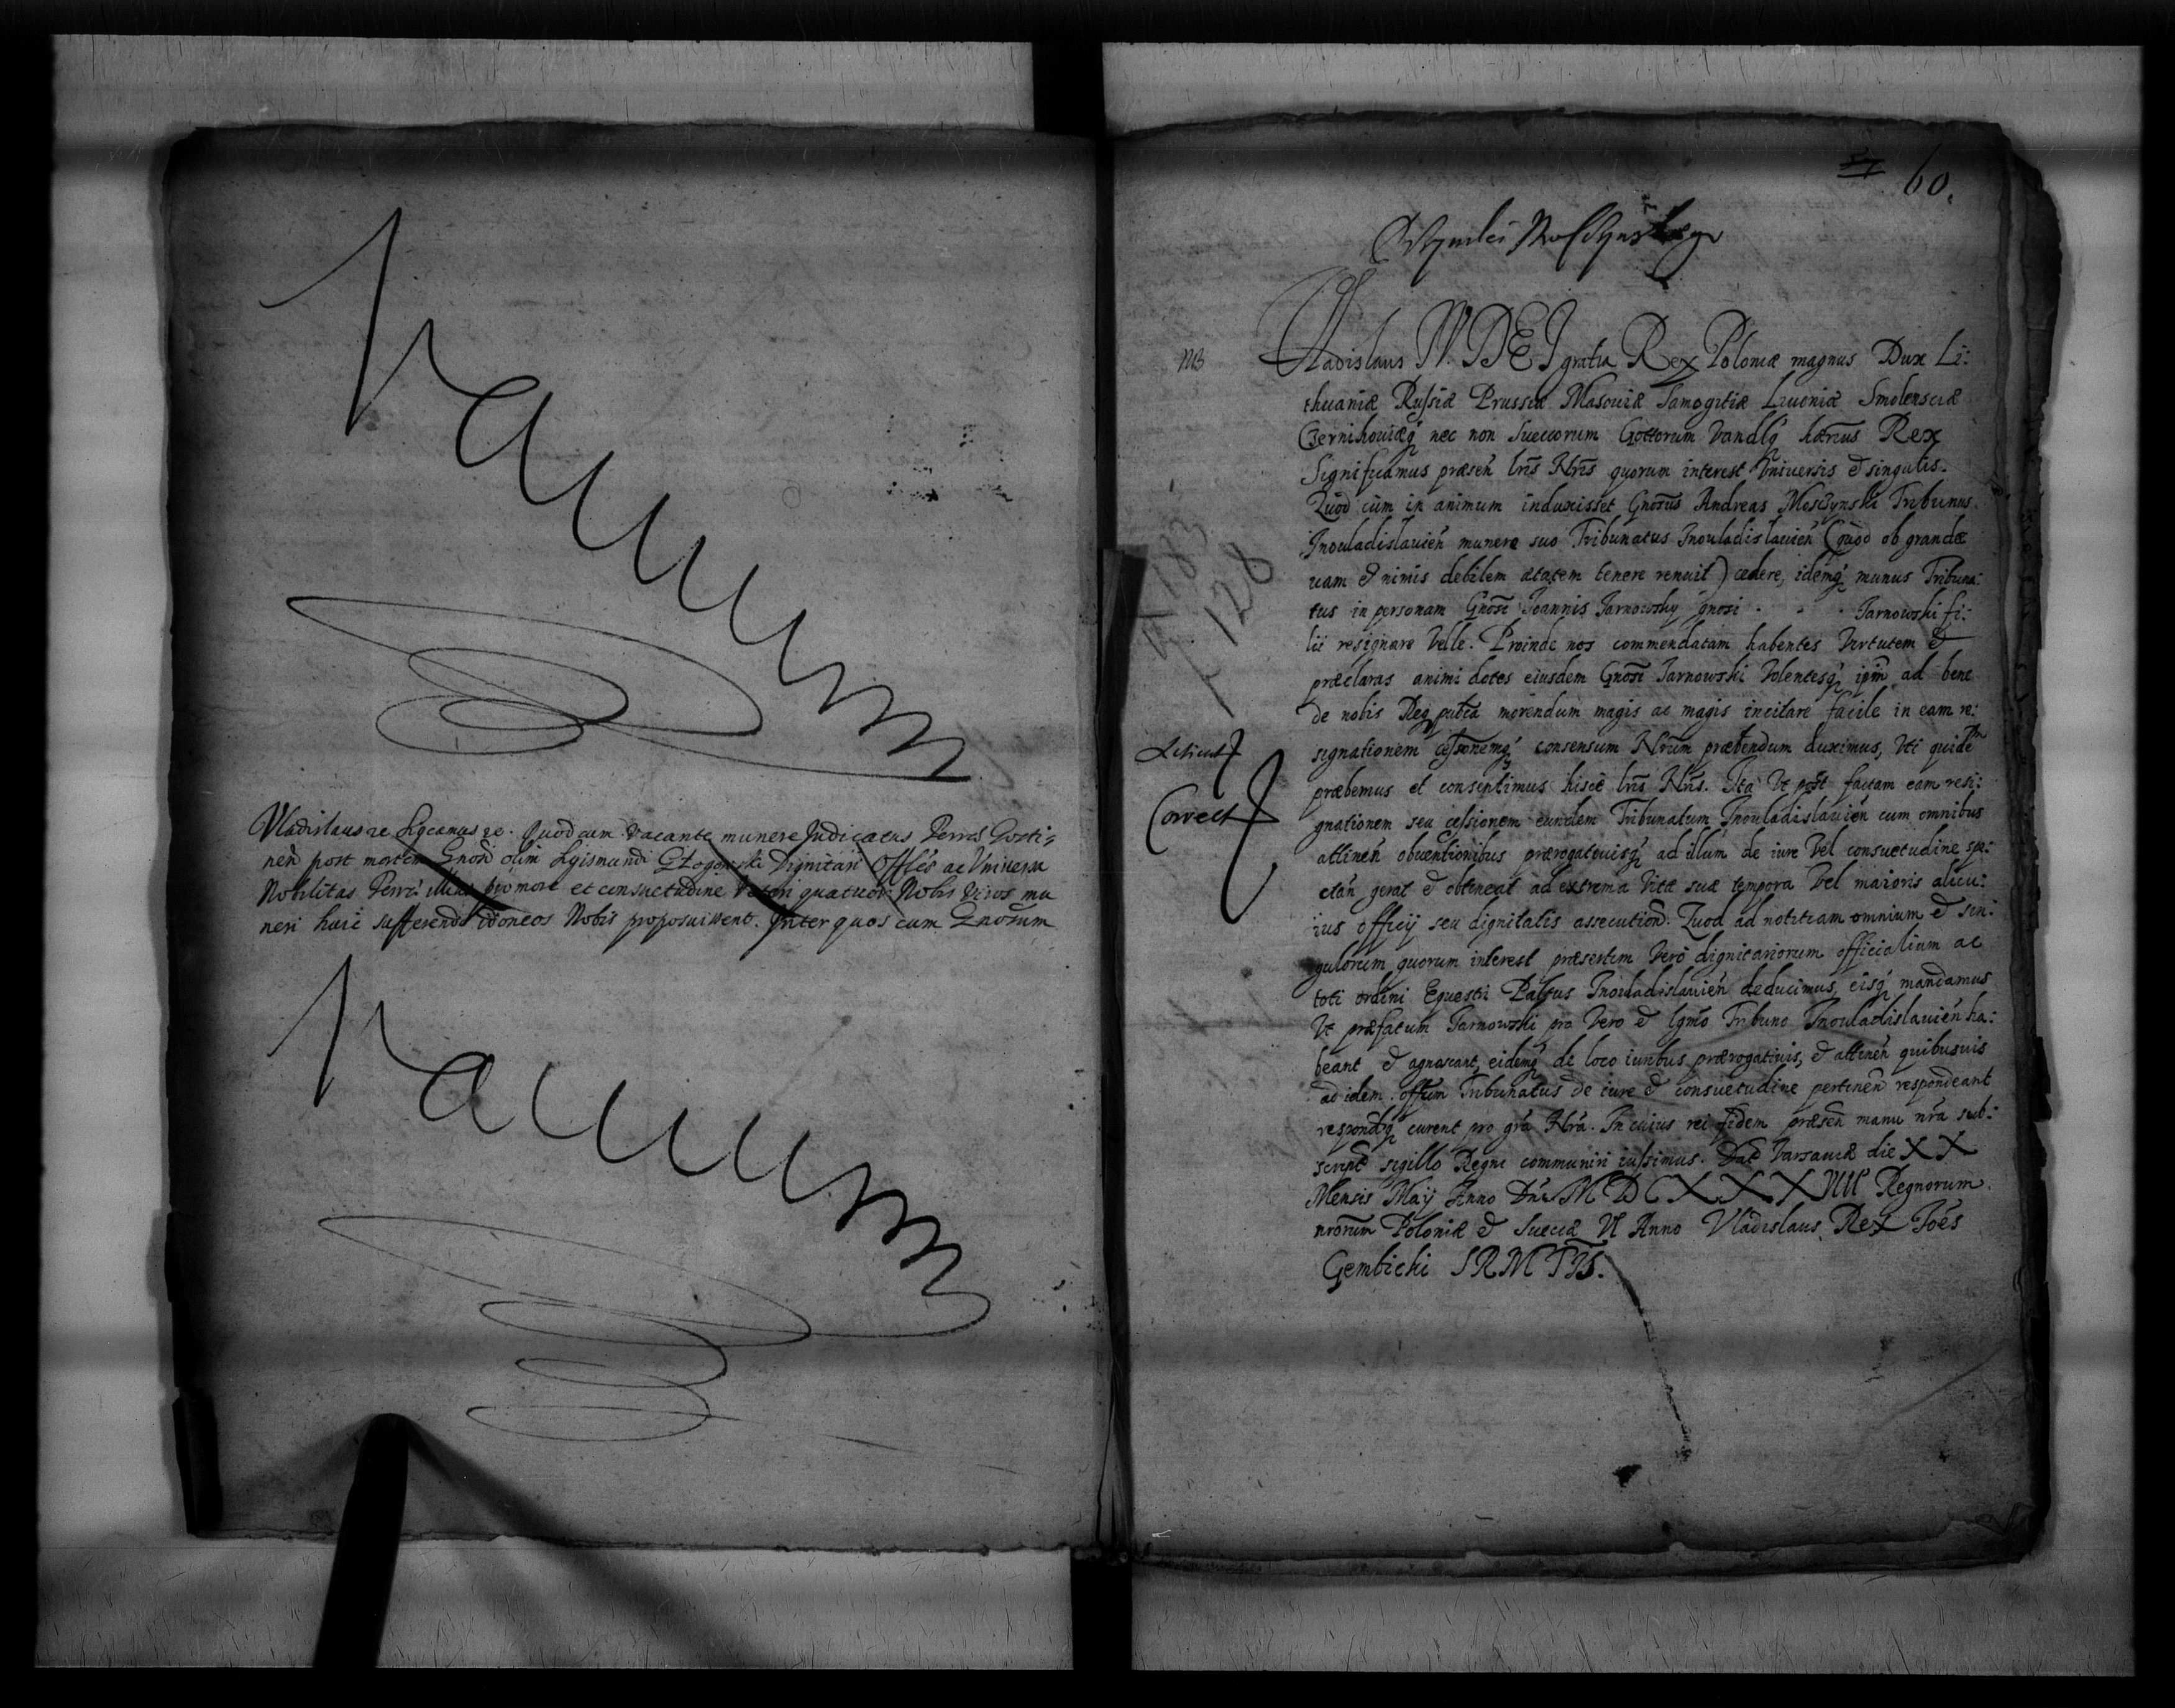 Vacuum
Vladislaus 2c Sigcamus 2c. Quod cum vacante munere Judicatus Terrae Gosti:
nen post mortem Gnosi olim Sigismundi Dignitari Offles ac Vniversa
Nobilitas Terrae illius pro more et consuetudine veteri quatuor Nobis Viros mu
neri huic sufferendo idoneos Nobis proposuissent. Inter quos cum Gnosum
Vacuum
60.
NB
Vladislaus IV. DEI gratia Rex Poloniæ magnus Dux Li:
thuaniæ Russiæ Prussiæ Masouiæ Samogitiæ Liuoniæ Smolensciæ
Czernihouiæq nec non Sueccorum Gottorum Vandlq hærius Rex
Significamus præsen lris Nris quorum interest Vniuersis & singulis.
Quod cum in animum induxisset Gnosus Andreas Mosczynski Tribunus
Inouladislauien munere suo Tribunatus Inouladislauien (quod ob grandæ
uam & nimis debilem ætatem tenere renuit) cedere, idemq munus Tribuna:
tus in personam Gnosi Joannis Jarnowsky gnosi . . . Jarnowski fi:
lii resignare velle. Proinde nos commendatam habentes Virtutem &
præclaras animi dotes eiusdem Gnosi Jarnowski Volentesq ipm ad bene
de nobis Req publca merendum magis ac magis incitare facile in eam re:
signationem cessionemq consensum Nrum præbendum duximus, Vti quidem
præbemus et consentimus hisce lris Nris. Ita Vt post factam eam resi:
gnationem seu cessionem eundem Tribunatum Inouladislauien cum omnibus
attinen obuentionibus prærogatiuisq ad illum de iure Vel consuetudine spe:
ctan gerat & obtineat ad extrema Vitæ suæ tempora Vel maioris alicu:
ius officij seu dignitatis assecution. Quod ad notitiam omnium & sin:
gulorum quorum interest præsertim Vero dignitariorum officialium ac
toti ordini Equestri Paltus Inouladislauien deducimus, eisq mandamus
Vt præfatum Jarnowski pro Vero & lgmo Tribuno Inouladislauien ha:
beant & agnoscant, eidemq de loco iuribus prærogatiuis, & attinen quibusuis
ad idem offum Tribunatus de iure & consuetudine pertinen respondeant
respondiq curent pro gra Nra. In cuius rei fidem præsen manu nra sub:
script sigillo Regni communiri iussimus. Dat Varsauiæ die XX
Mensis Maij Anno Dni MDCXXXVIII Regnorum
nrorum Poloniæ & Sueciæ VI Anno Vladislaus Rex Joes
Gembicki SRM
Correct
183
128